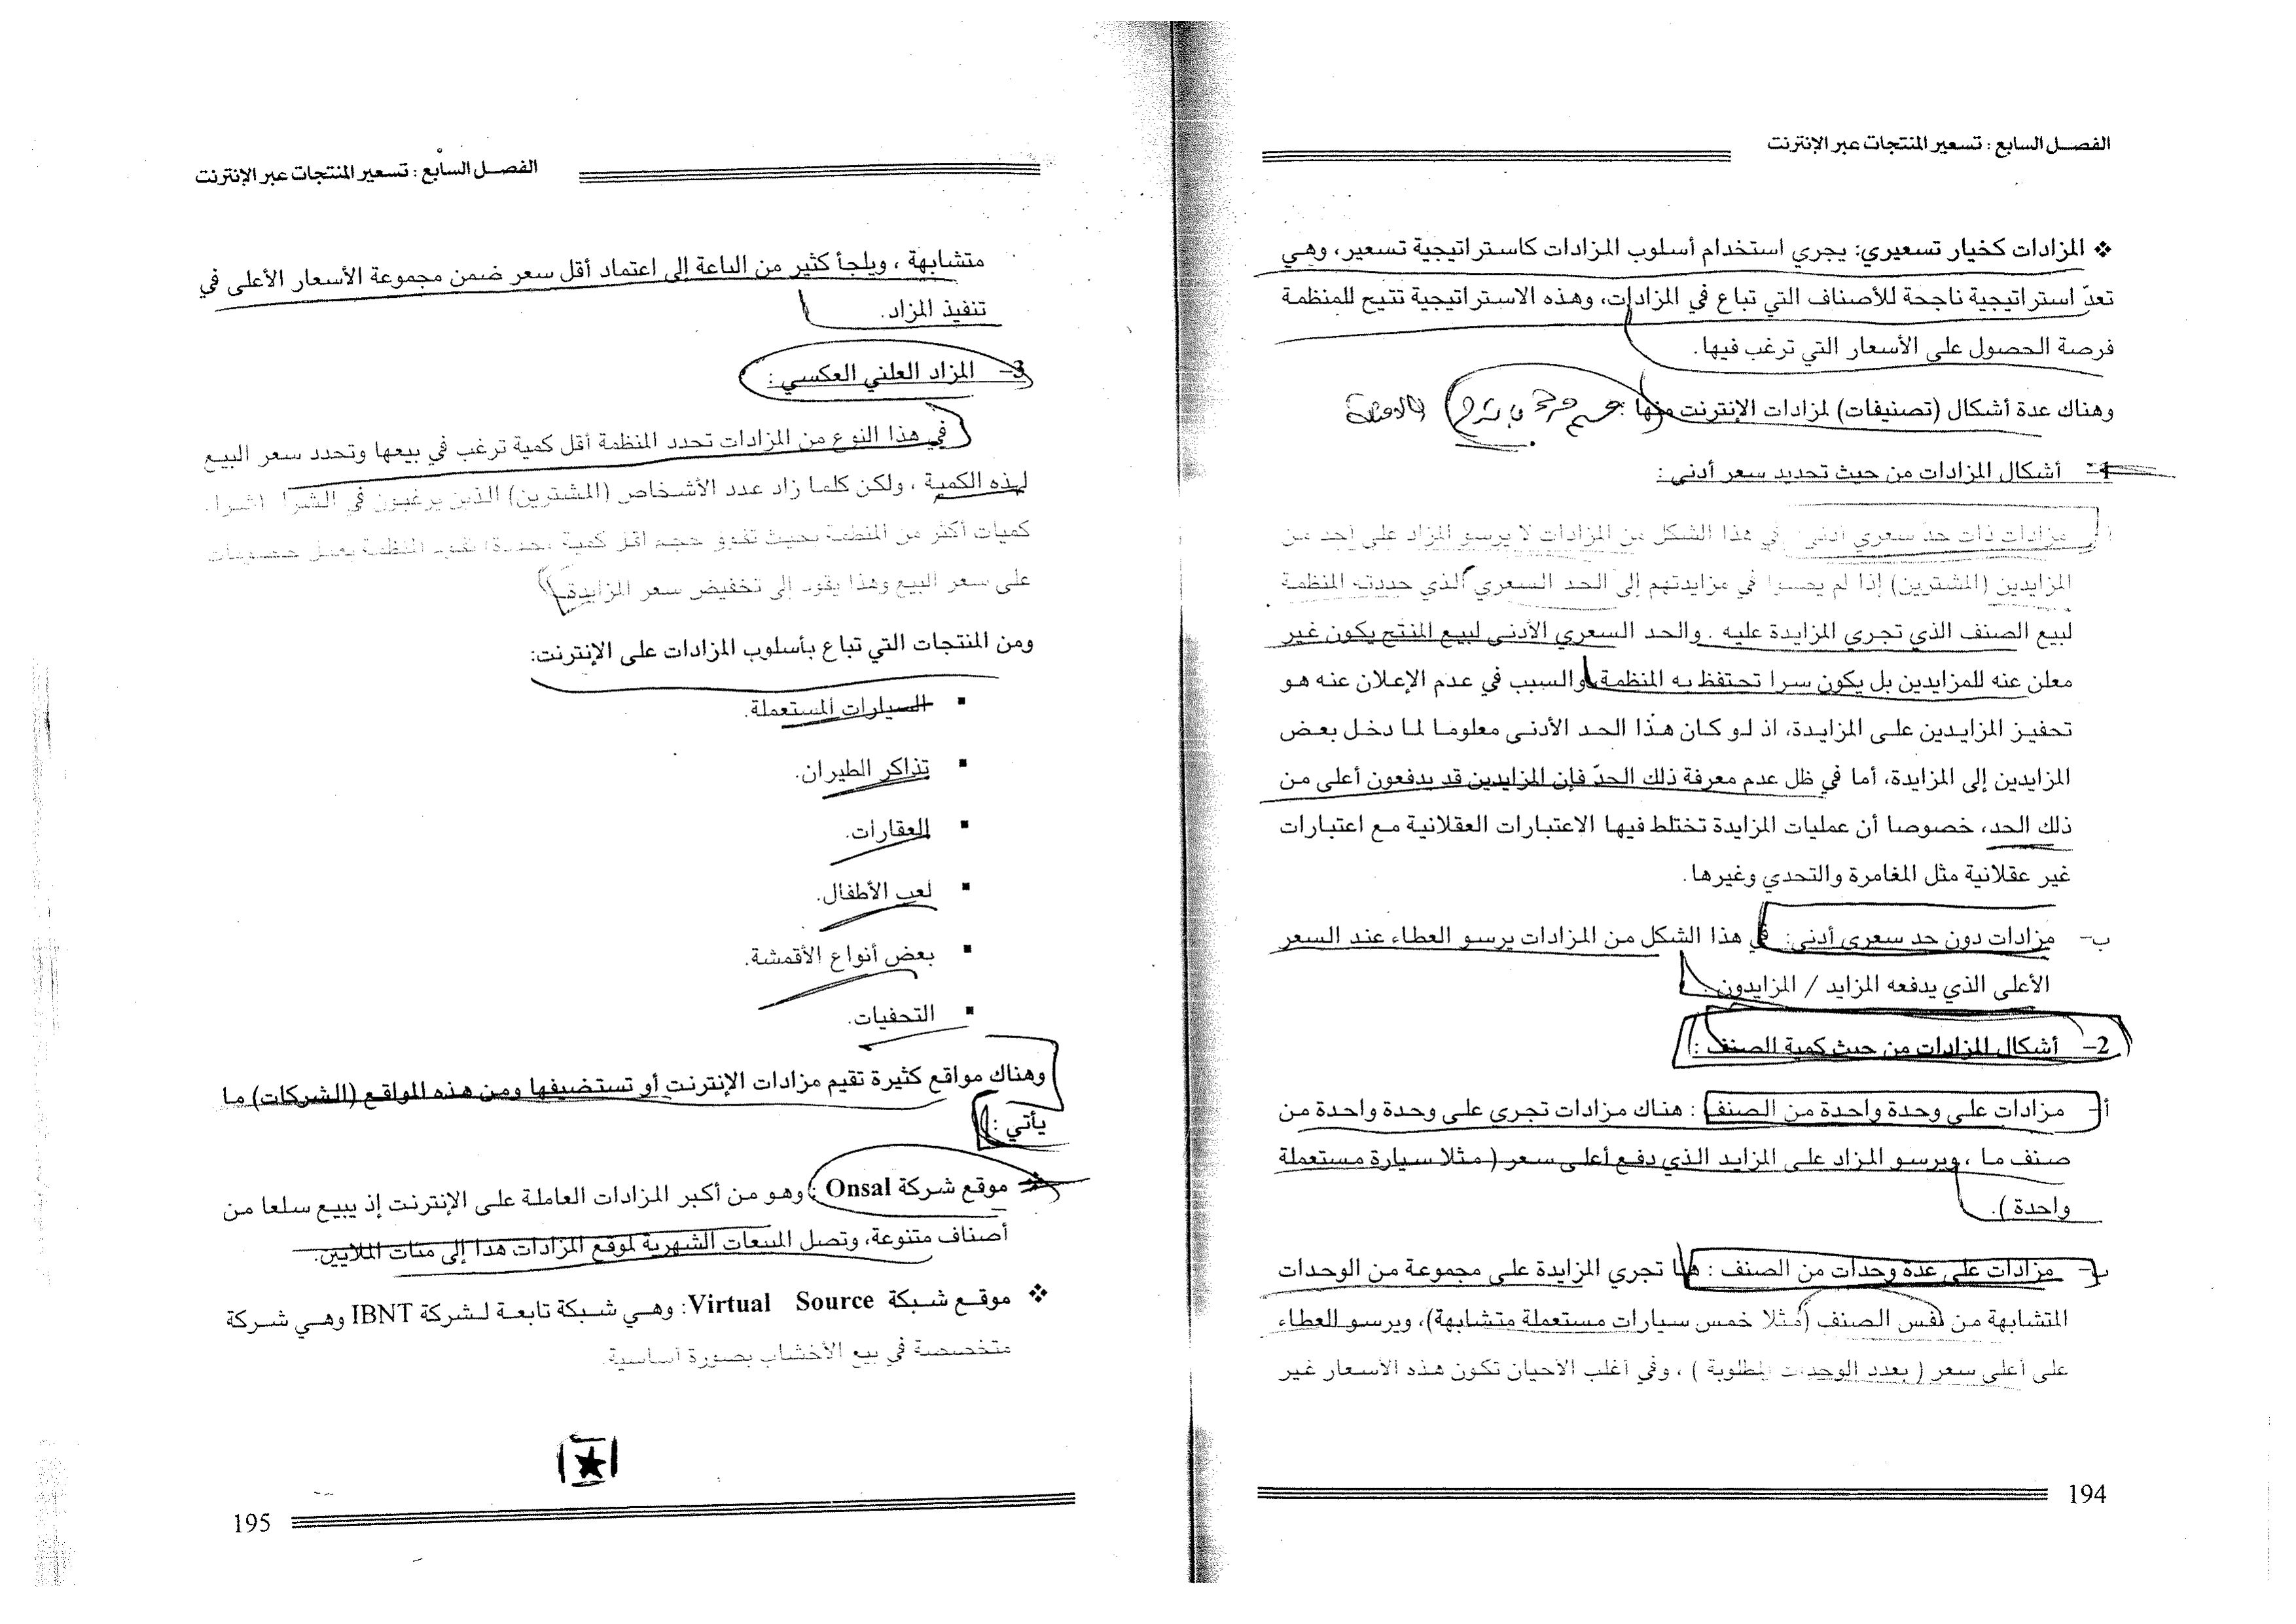 الفصل السابع : تسعير المنتجات عبر الإنترنت
❖ المزادات كخيار تسعيري: يجري استخدام أسلوب المزادات كاستراتيجية تسعير، وهي
تعدّ استراتيجية ناجحة للأصناف التي تباع في المزادات، وهذه الاستراتيجية تتيح للمنظمة
فرصة الحصول على الأسعار التي ترغب فيها.
وهناك عدة أشكال (تصنيفات) لمزادات الإنترنت منها :
1- أشكال المزادات من حيث تحديد سعر أدنى :
أ- مزادات ذات حدّ سعري أدنى: في هذا الشكل من المزادات لا يرسو المزاد على أحد من
المزايدين (المشترين) إذا لم يصلوا في مزايدتهم إلى الحد السعري الذي حددته المنظمة
لبيع الصنف الذي تجري المزايدة عليه . والحد السعري الأدنى لبيع المنتج يكون غير
معلن عنه للمزايدين بل يكون سرا تحتفظ به المنظمة، والسبب في عدم الإعلان عنه هو
تحفيز المزايدين على المزايدة، اذ لو كان هذا الحد الأدنى معلوما لما دخل بعض
المزايدين إلى المزايدة، أما في ظل عدم معرفة ذلك الحدّ فإن المزايدين قد يدفعون أعلى من
ذلك الحد، خصوصا أن عمليات المزايدة تختلط فيها الاعتبارات العقلانية مع اعتبارات
غير عقلانية مثل المغامرة والتحدي وغيرها.
ب- مزادات دون حد سعري أدنى: في هذا الشكل من المزادات يرسو العطاء عند السعر
الأعلى الذي يدفعه المزايد / المزايدون .
2- أشكال المزادات من حيث كمية الصنف :
أ- مزادات على وحدة واحدة من الصنف : هناك مزادات تجرى على وحدة واحدة من
صنف ما ، ويرسو المزاد على المزايد الذي دفع أعلى سعر ( مثلا سيارة مستعملة
واحدة ).
ب- مزادات على عدة وحدات من الصنف : هنا تجري المزايدة على مجموعة من الوحدات
المتشابهة من نفس الصنف (مثلا خمس سيارات مستعملة متشابهة)، ويرسو العطاء
على أعلى سعر ( بعدد الوحدات المطلوبة ) ، وفي أغلب الأحيان تكون هذه الأسعار غير
194
الفصل السابع : تسعير المنتجات عبر الإنترنت
متشابهة ، ويلجأ كثير من الباعة إلى اعتماد أقل سعر ضمن مجموعة الأسعار الأعلى في
تنفيذ المزاد.
3- المزاد العلني العكسي :
في هذا النوع من المزادات تحدد المنظمة أقل كمية ترغب في بيعها وتحدد سعر البيع
لهذه الكمية ، ولكن كلما زاد عدد الأشخاص (المشترين) الذين يرغبون في الشراء
كميات أكثر من المنظمة بحيث تفوق حجم أقل كمية تقوم المنظمة بعمل خصومات
على سعر البيع وهذا يقود إلى تخفيض سعر المزايدة.
ومن المنتجات التي تباع بأسلوب المزادات على الإنترنت:
▪ السيارات المستعملة.
▪ تذاكر الطيران.
▪ العقارات.
▪ لعب الأطفال.
▪ بعض أنواع الأقمشة.
▪ التحفيات.
وهناك مواقع كثيرة تقيم مزادات الإنترنت أو تستضيفها ومن هذه المواقع (الشركات) ما
يأتي :
❖ موقع شركة Onsal : وهو من أكبر المزادات العاملة على الإنترنت إذ يبيع سلعا من
أصناف متنوعة، وتصل المبيعات الشهرية لموقع المزادات هذا إلى مئات الملايين.
❖ موقع شبكة Virtual Source: وهي شبكة تابعة لشركة IBNT وهي شركة
متخصصة في بيع الأخشاب بصورة أساسية.
195